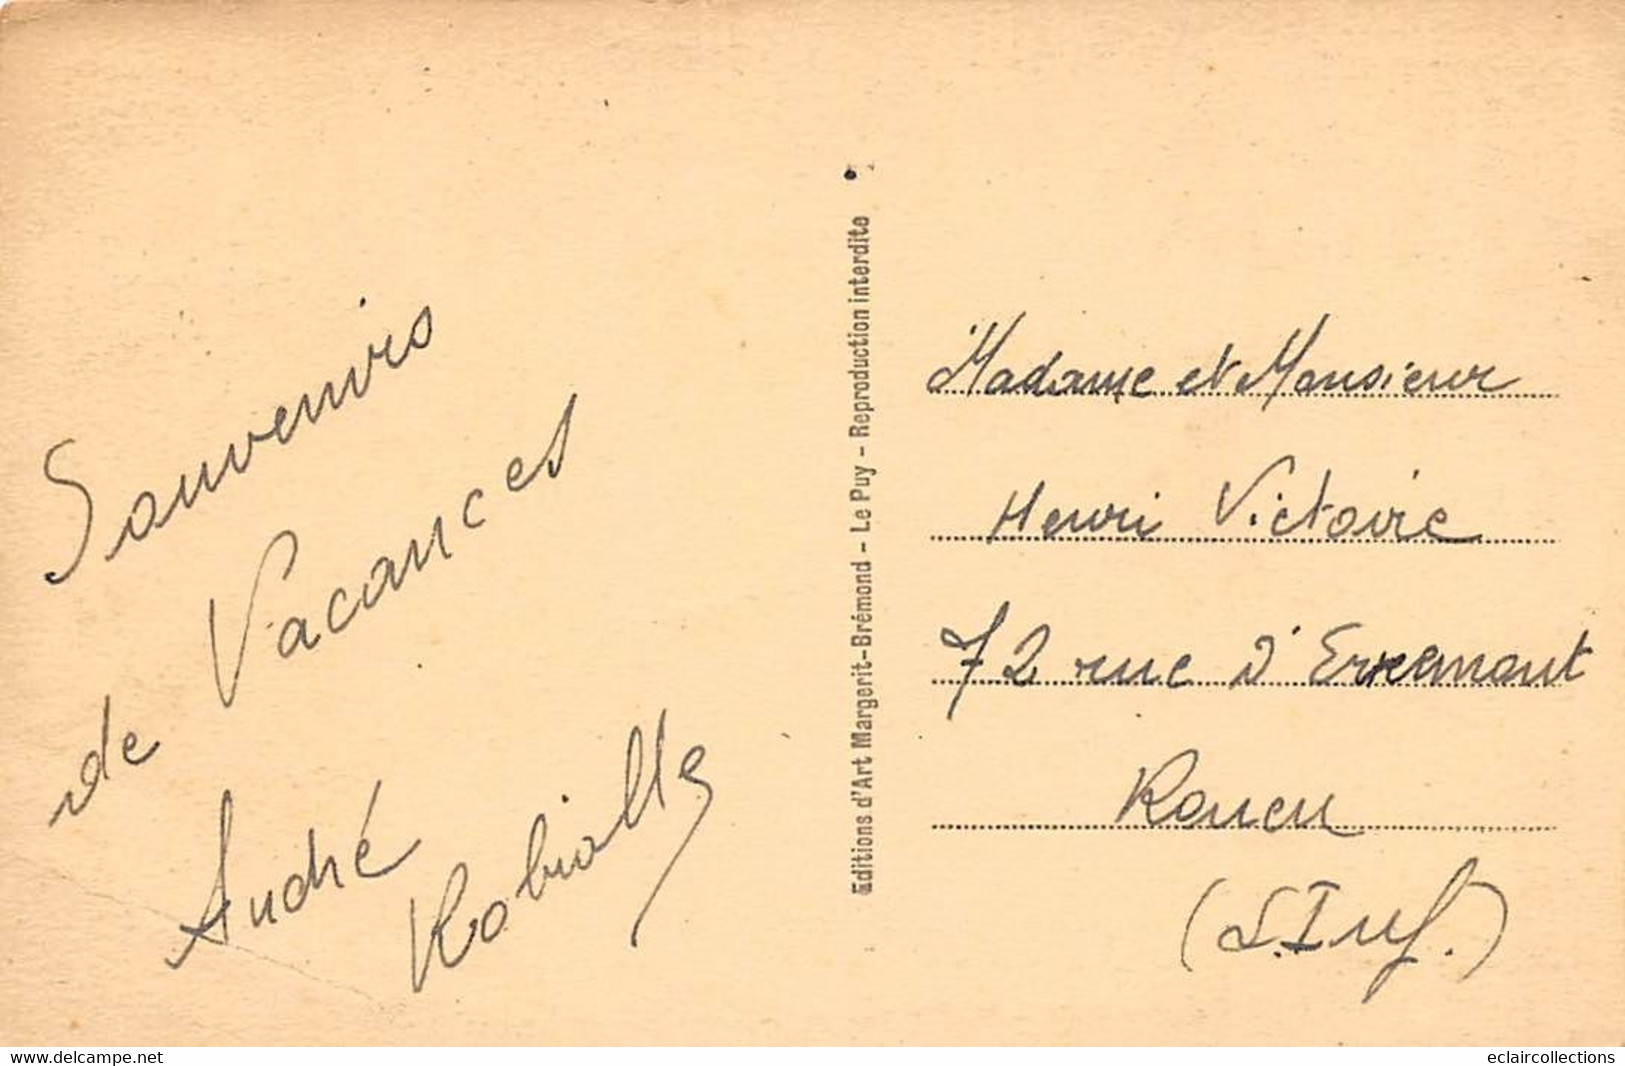 Souvenirs
de Vacances
André
Robiolle
Editions d'Art Margerit-Brémond - Le Puy - Reproduction interdite
Madame et Monsieur
Henri Victoire
72 rue d'Ernemont
Rouen
(S. Inf.)
www.delcampe.net
eclaircollections